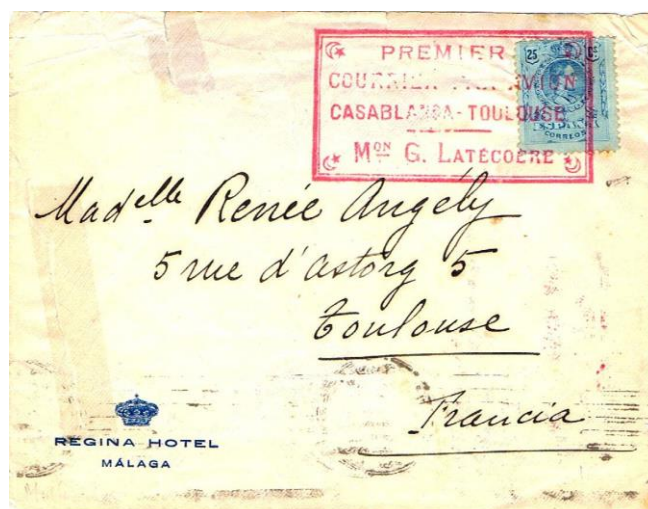 PREMIER
COURRIER PAR AVION
CASABLANCA - TOULOUSE
Mon G. LATÉCOÈRE
25
CORREOS
Madelle Renée Angély
5 rue d'astorg 5
Toulouse
Francia
REGINA HOTEL
MÁLAGA